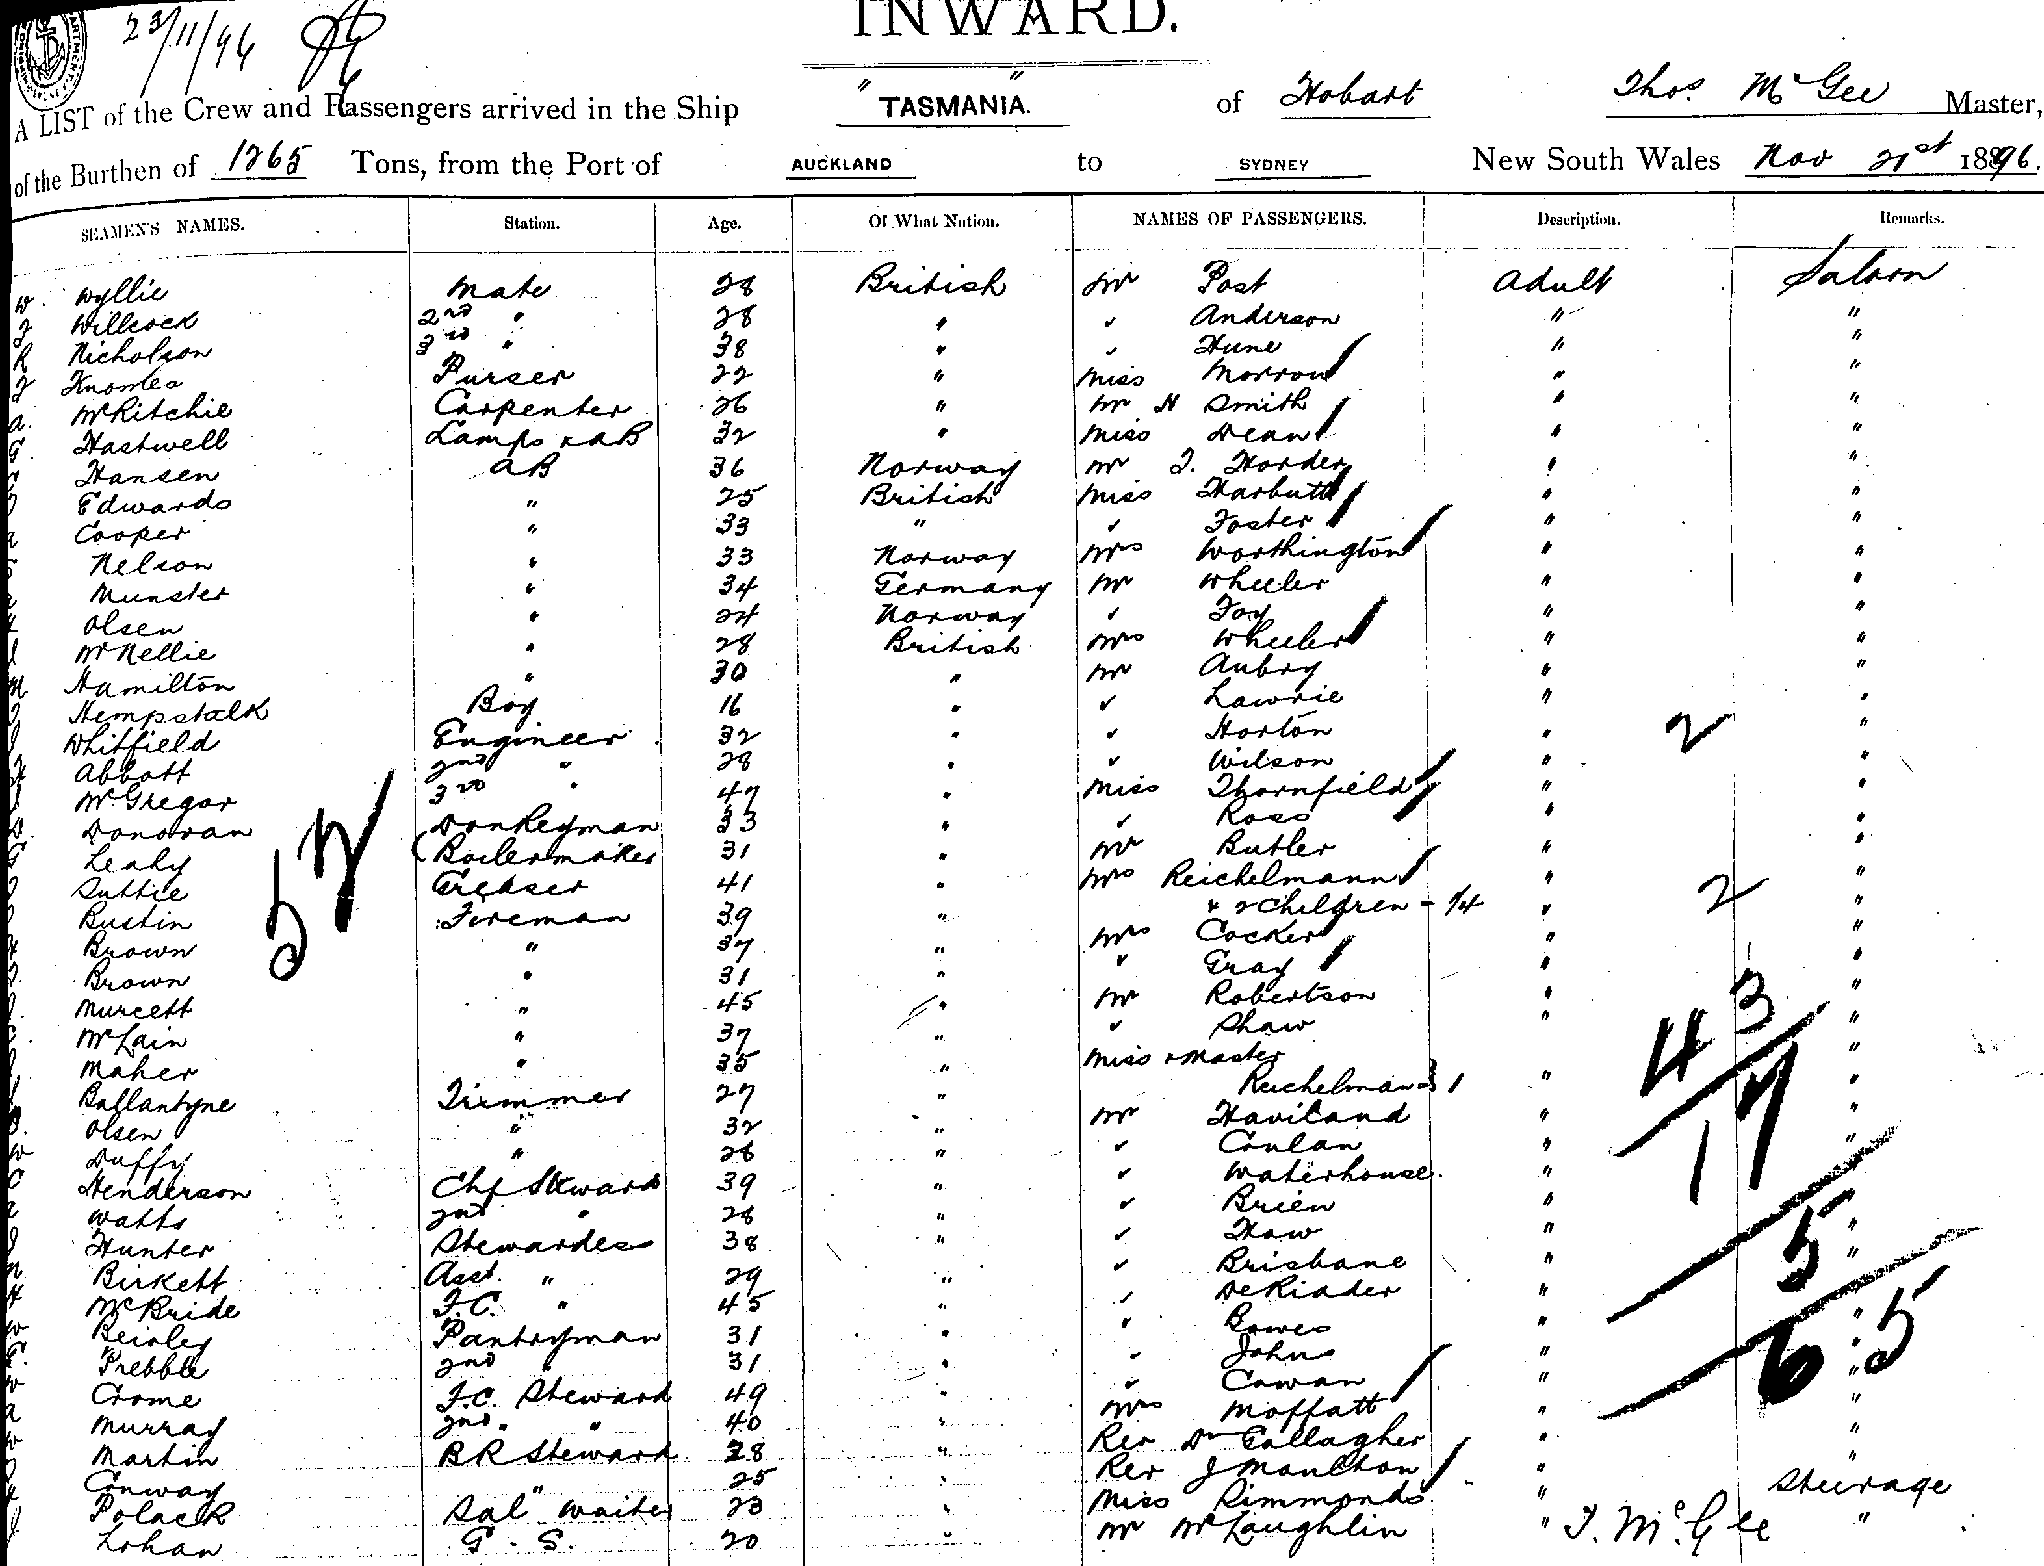 23/11/96
INWARD.
A LIST of the Crew and Passengers arrived in the Ship "TASMANIA." of Hobart Thos. McGee Master,
of the Burthen of 1265 Tons, from the Port of AUCKLAND to SYDNEY New South Wales Nov 21st 1896.
SEAMEN'S NAMES. Station. Age. Of What Nation. NAMES OF PASSENGERS. Description. Remarks.
W. Wyllie Mate 28 British Mr Post Adult Saloon
Willcock 2nd " 28 " " Anderson " "
R Nicholson 3rd " 38 " " Hune " "
Purser 22 " Miss Morrow " "
a. McRitchie Carpenter 26 " Mr H Smith " "
G. Hastwell Lamps & AB 32 " Miss Dean " "
Hansen AB 36 Norway Mr T. Horder " "
Edwards " 25 British Miss Harbutt " "
Cooper " 33 " " Foster " "
Nelson " 33 Norway Mrs Worthington " "
Munster " 34 Germany Mr Wheeler " "
Olsen " 24 Norway " Foy " "
McNellie " 28 British Mrs Wheeler " "
Hamilton " 30 " Mr Aubry " "
Hempstalk Boy 16 " " Lawrie " "
Whitfield Engineer 32 " " Horton " 2 "
Abbott 2nd " 28 " " Wilson " "
McGregor 3rd " 47 " Miss Thornfield " "
Donovan Donkeyman 33 " " Ross " "
52
Leahy (Boilermaker 31 " Mr Butler " "
Suttie Greaser 41 " Mrs Reichelmann " "
Bustin Fireman 39 " " 2 Children - 1/4 " 2 "
Brown " 37 " Mrs Cocker " "
Brown " 31 " " Gray " "
Murcett " 45 " Mr Robertson " 43 "
McLain " 37 " " Shaw " "
Maher " 35 " Miss & Master "
Ballantyne Trimmer 27 " Reichelman 1 " 17 "
Olsen " 32 " Mr Haviland " "
Duffy " 28 " " Conlan " "
Henderson Chf Steward 39 " " Waterhouse " "
Watts 2nd " 28 " " Brien " "
Hunter Stewardess 38 " " Haw " 5 "
Birkett Asst. " 29 " " Brisbane " "
McBride F.C. " 45 " " DeRiader " "
Beisley Pantryman 31 " " Bowes " 65 "
Prebble 2nd " 31 " " Johns " "
Crome F.C. Steward 49 " " Cowan " "
Murray 2nd " " 40 " Mrs Moffatt " "
Martin BR Steward 28 " Rev Dr Gallagher " "
Conway " 25 " Rev J Moulton " "
Polack Sal Waiter 23 " Miss Simmonds " Steerage
Lohan G. S. 20 " Mr McLaughlin " T. McGee "